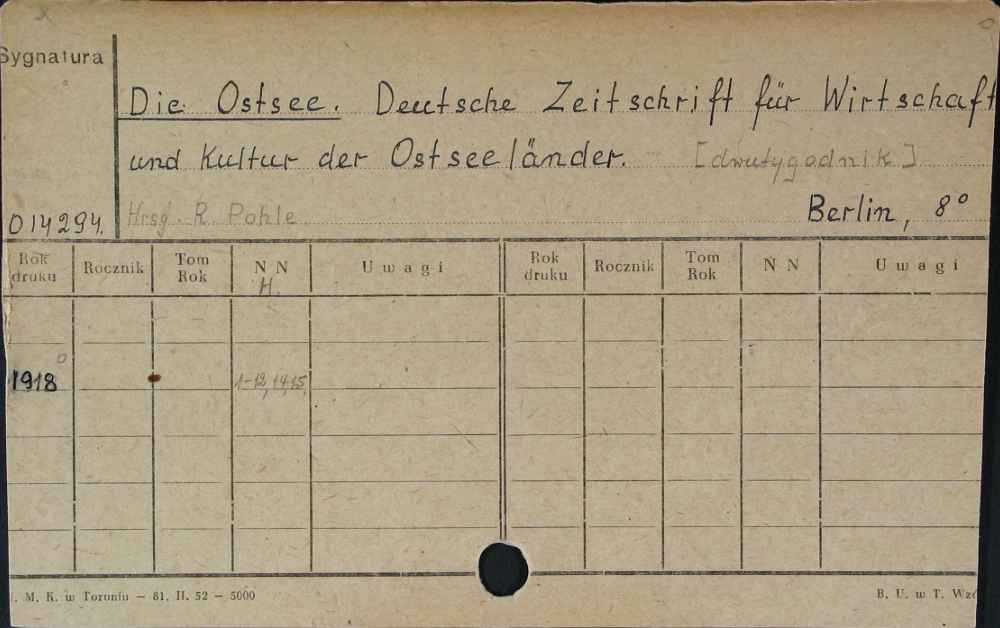 Sygnatura
Die Ostsee. Deutsche Zeitschrift für Wirtschaft
und Kultur der Ostseeländer. [dwutygodnik]
014294. Hrsg. R. Pohle Berlin, 8°
Rok druku Rocznik Tom Rok N N Uwagi Rok druku Rocznik Tom Rok N N Uwagi
H.
1918 1-12, 14, 15,
. M. K. w Toruniu — 81. II. 52 — 5000 B. U. w T.